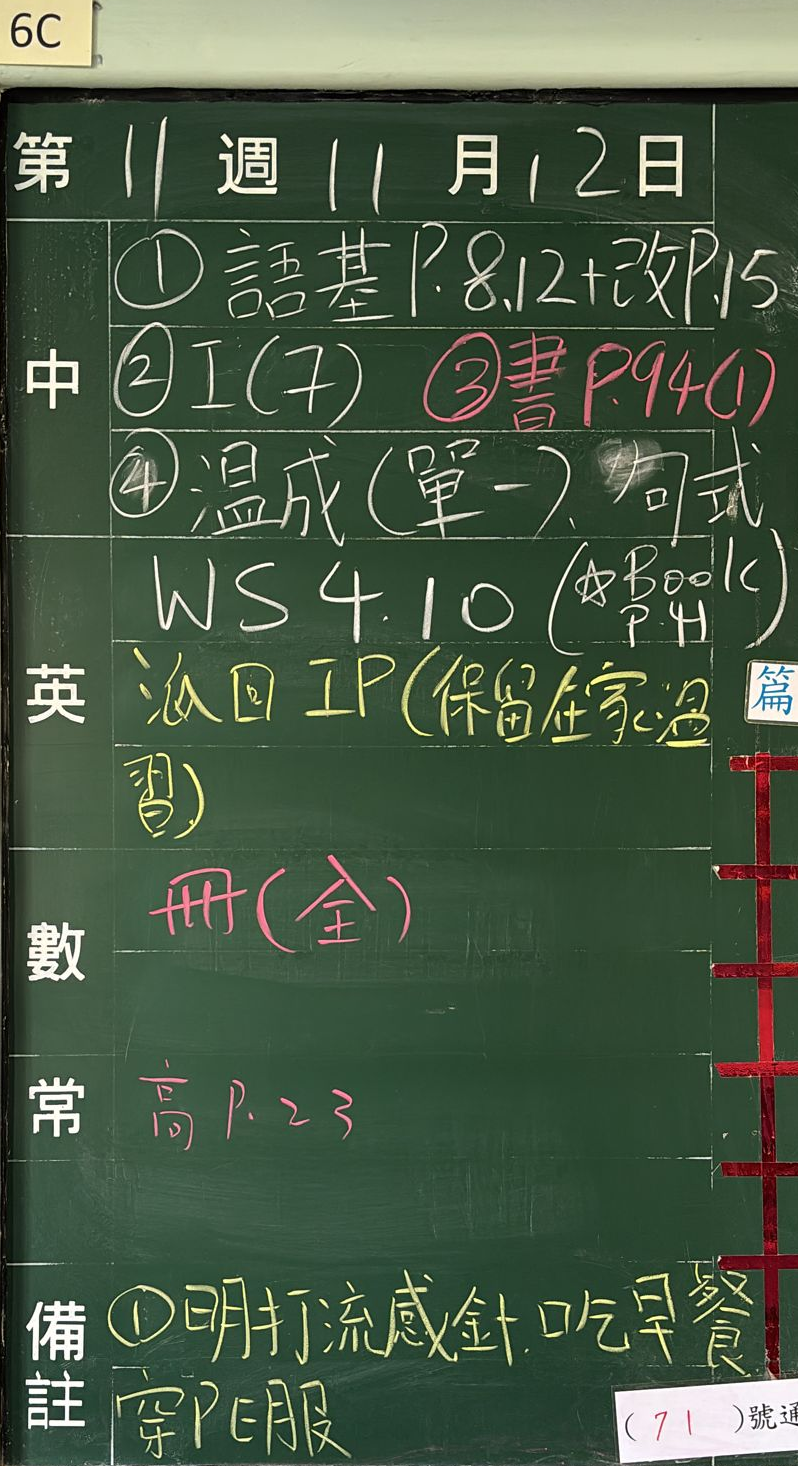 6C
第 11 週 11 月 12 日
中
① 語基 P.8,12+改P.15
② I(7) ③書 P.94(1)
④ 温成(單一)、句式
英
WS 4.10 (☆Book P.41)
派回 IP(保留在家温
習)
數
冊(全)
常
高 P.23
備註
① 明打流感針,吃早餐
穿PE服
篇
(71)號通